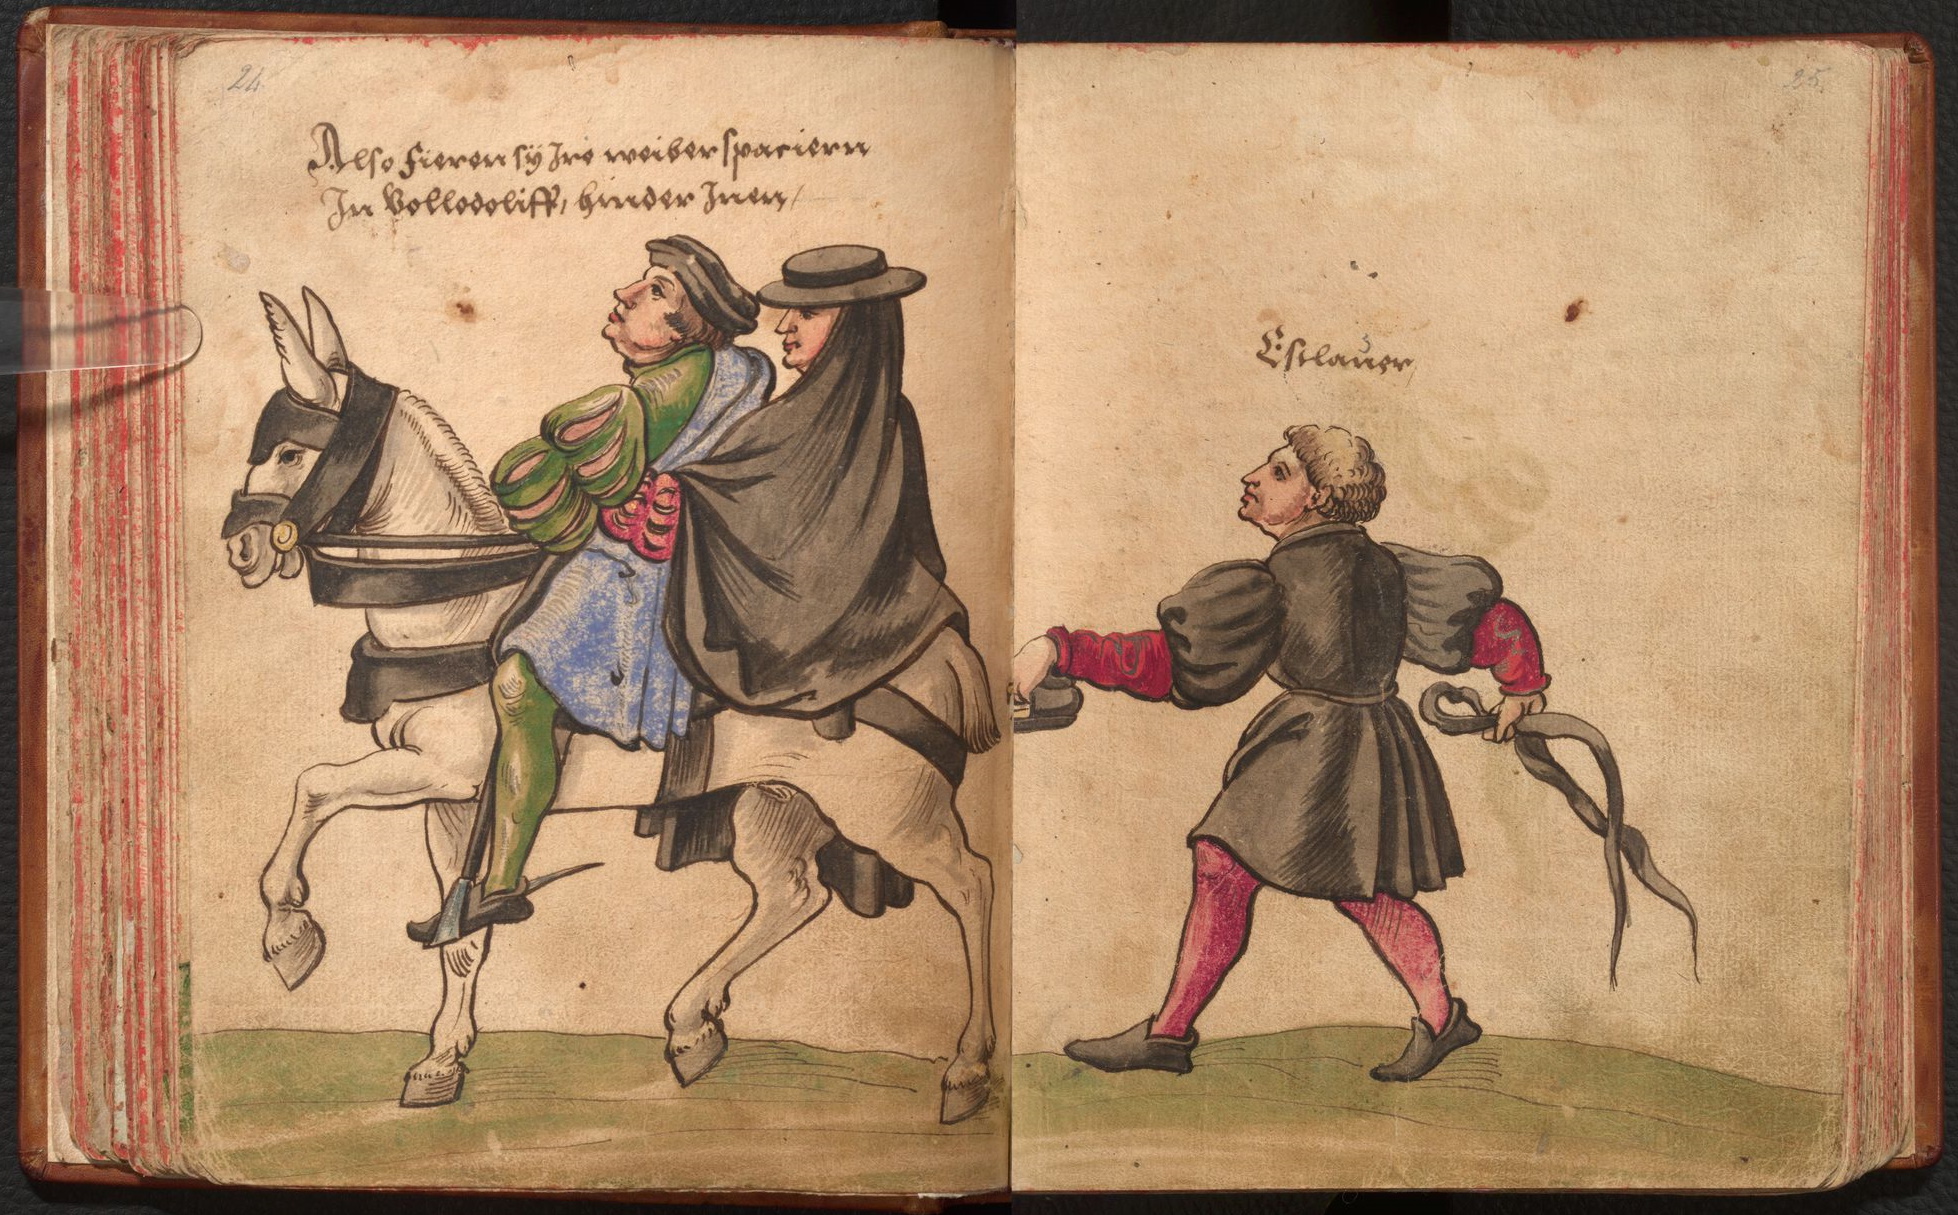 24
Also fieren sÿ Ire weiber spaciern
In Volledoliff, hinder Inen /
25
Esclauer